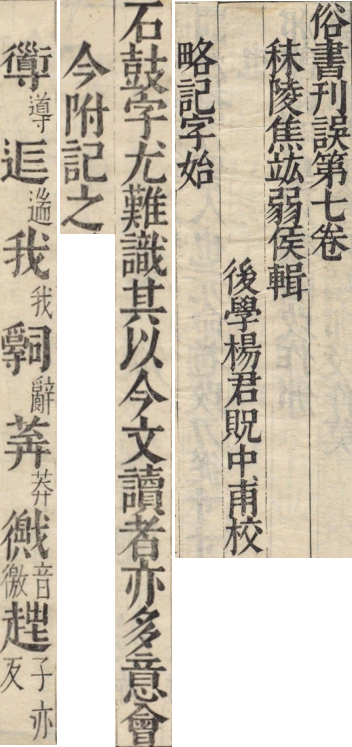 俗書刊誤第七卷
秣陵焦竑弱侯輯
後學楊君貺中甫校
略記字始
石鼓字尤難識其以今文讀者亦多意會
今附記之
導 我我 辭 莽 音徼 子亦反